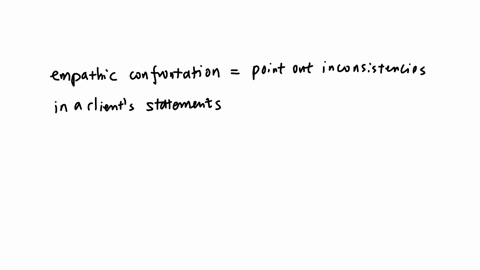 empathic confrontation = point out inconsistencies
in a client's statements